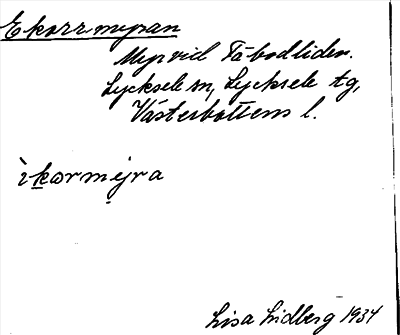 Ekorrmyran
Myr vid Fäbodliden.
Lycksele sn, Lycksele tg,
Västerbottens l.
ìkormyra
Lisa Lidberg 1934